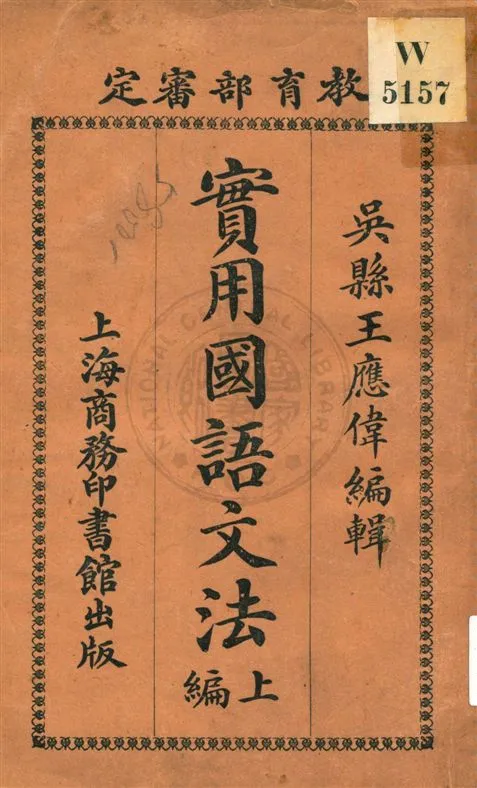 W
5157
教育部審定
吳縣王應偉編輯
實用國語文法
上編
上海商務印書館出版
NATIONAL CENTRAL LIBRARY